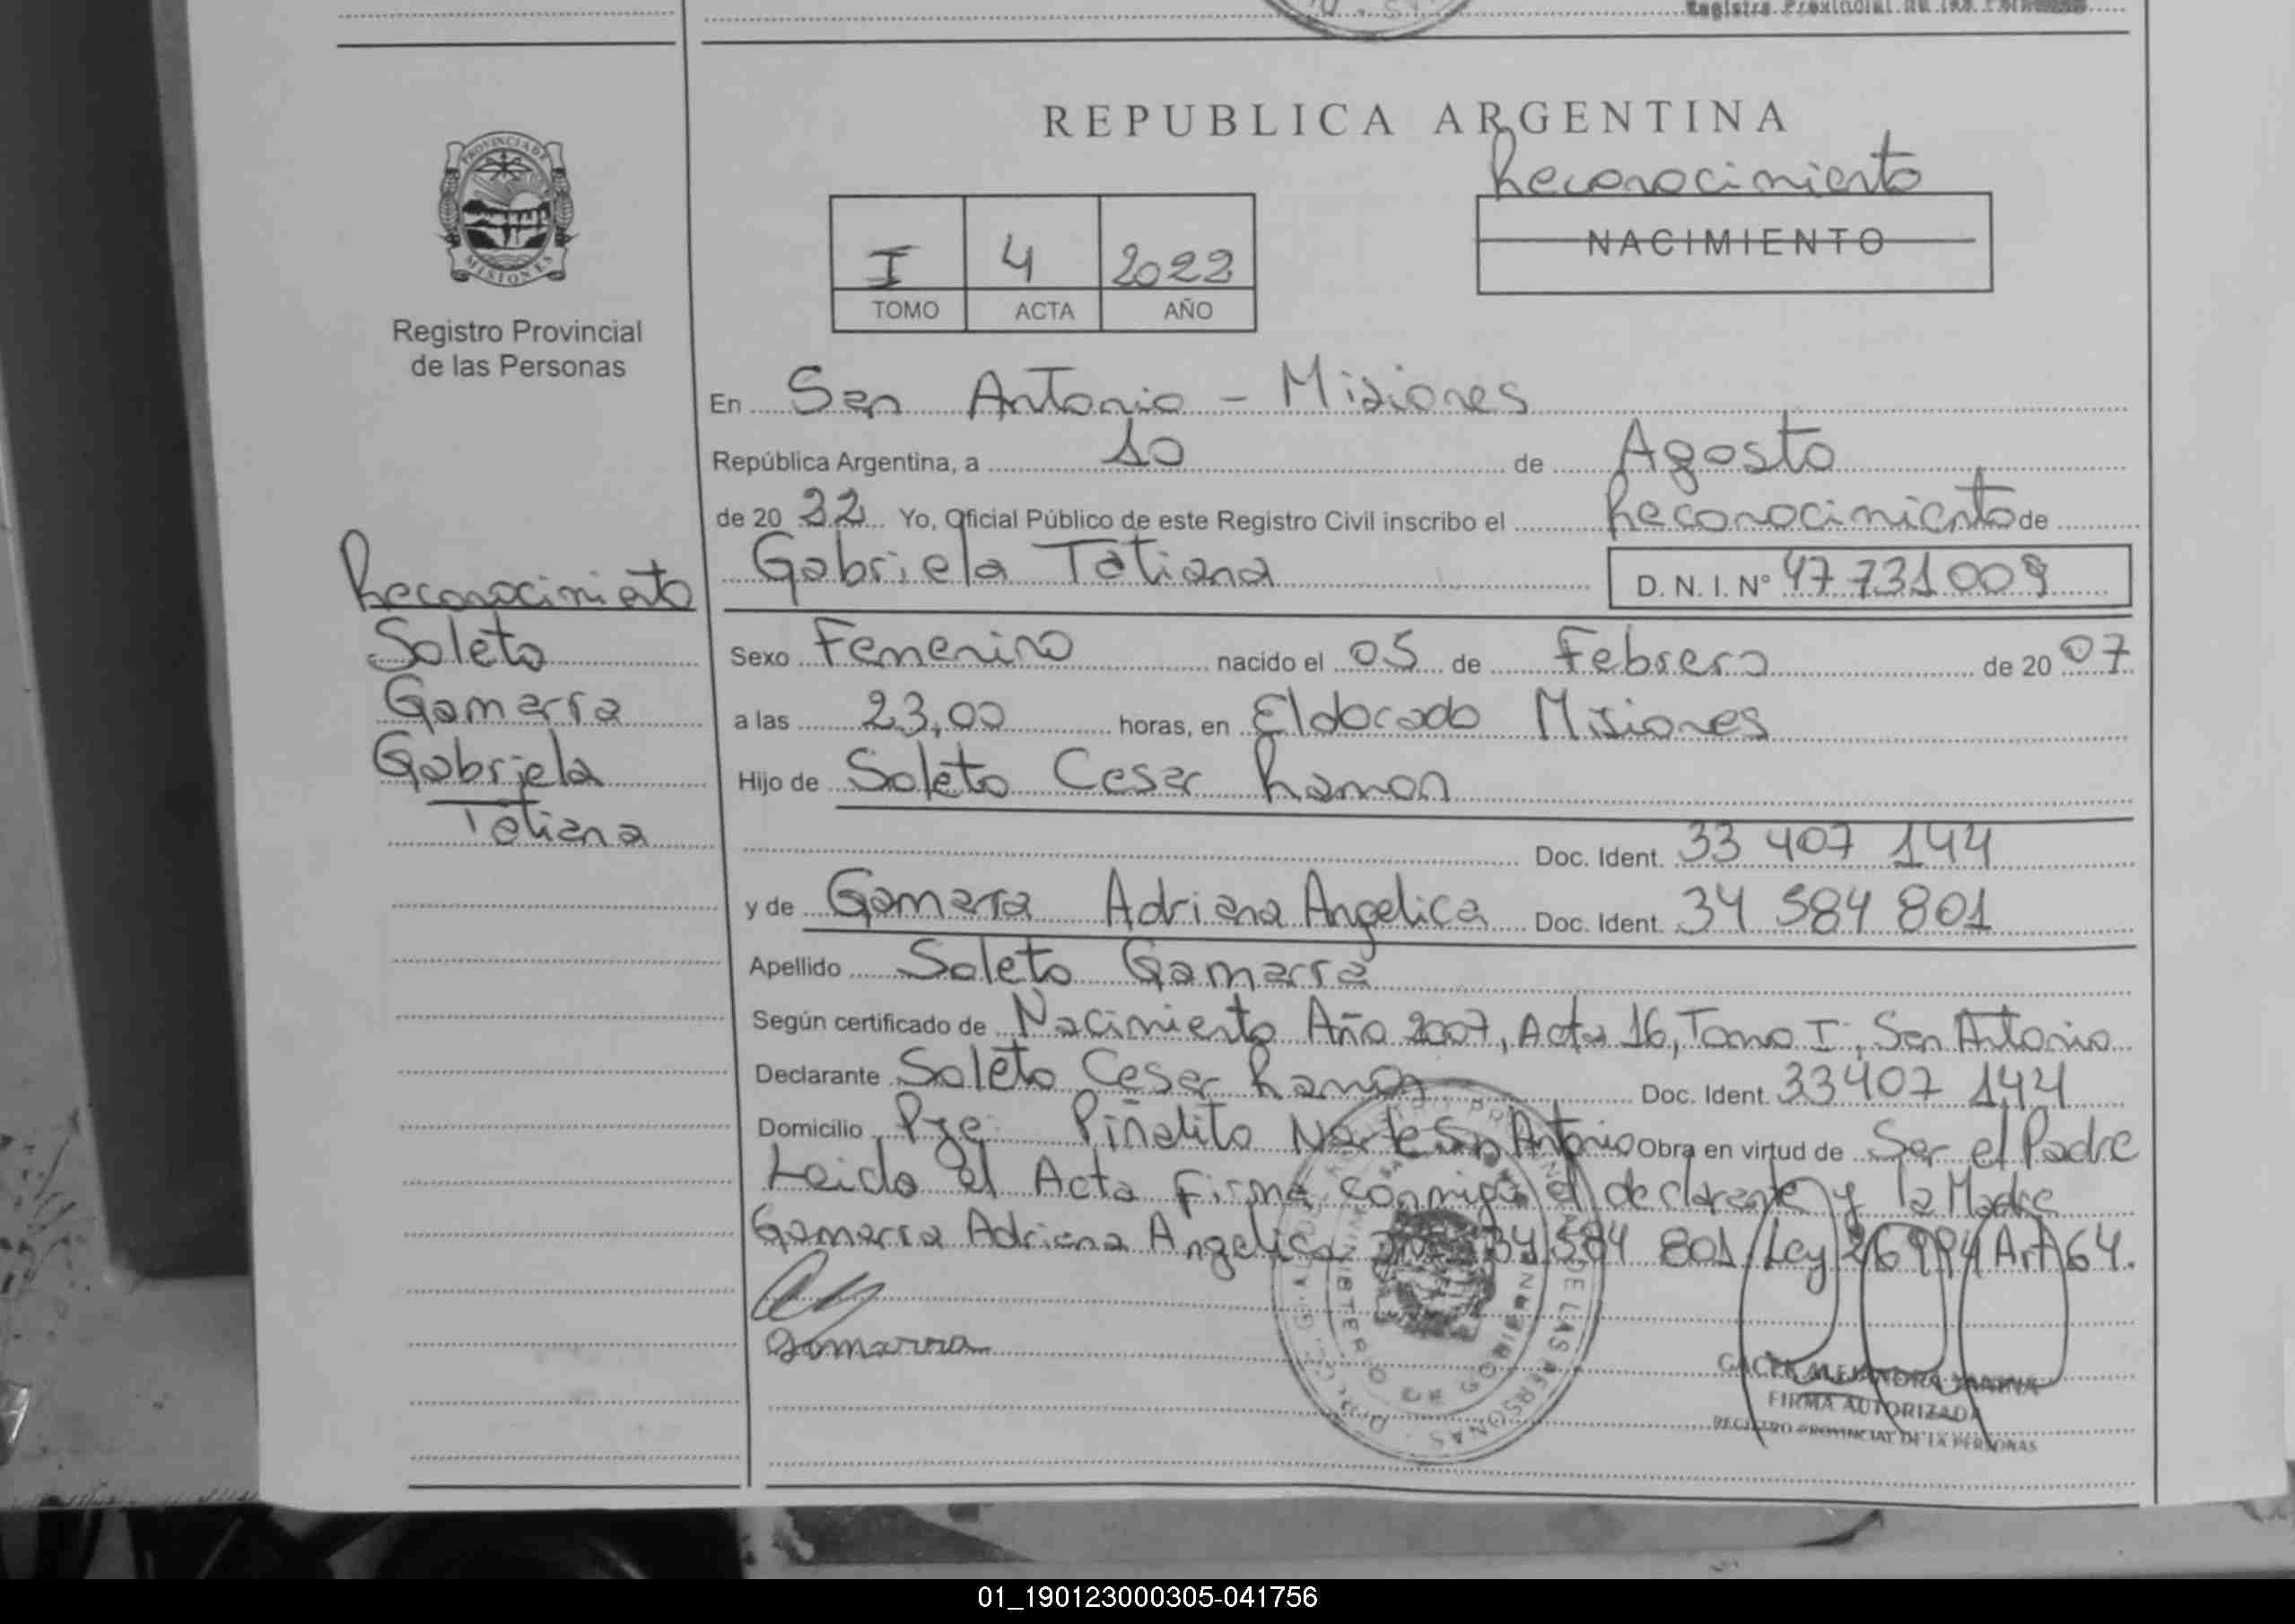 Registro Provincial de las Personas
REPUBLICA ARGENTINA
Reconocimiento
NACIMIENTO
PROVINCIA DE
MISIONES
Registro Provincial
de las Personas
I 4 2022
TOMO ACTA AÑO
En San Antonio - Misiones
República Argentina, a 10 de Agosto
de 20 22 Yo, Oficial Público de este Registro Civil inscribo el Reconocimiento de
Gabriela Tatiana D. N. I. N° 47 731 009
Sexo Femenino nacido el 05 de Febrero de 20 07
a las 23,00 horas, en Eldorado Misiones
Hijo de Soleto Cesar Ramon
Doc. Ident. 33 407 144
y de Gamarra Adriana Angelica Doc. Ident. 34 584 801
Apellido Soleto Gamarra
Según certificado de Nacimiento Año 2007, Acta 16, Tomo I, San Antonio
Declarante Soleto Cesar Ramon Doc. Ident. 33407 144
Domicilio Pje Piñalito Norte San Antonio Obra en virtud de Ser el Padre
Leido el Acta Firma conmigo el declarante y la Madre
Gamarra Adriana Angelica DNI 34 584 801 Ley 26994 Art 64.
Gamarra
Reconocimiento
Soleto
Gamarra
Gabriela
Tatiana
MINISTERIO DE GOBIERNO
DE LAS PERSONAS
ALEJANDRA YANINA
FIRMA AUTORIZADA
REGISTRO PROVINCIAL DE LA PERSONAS
01_190123000305-041756